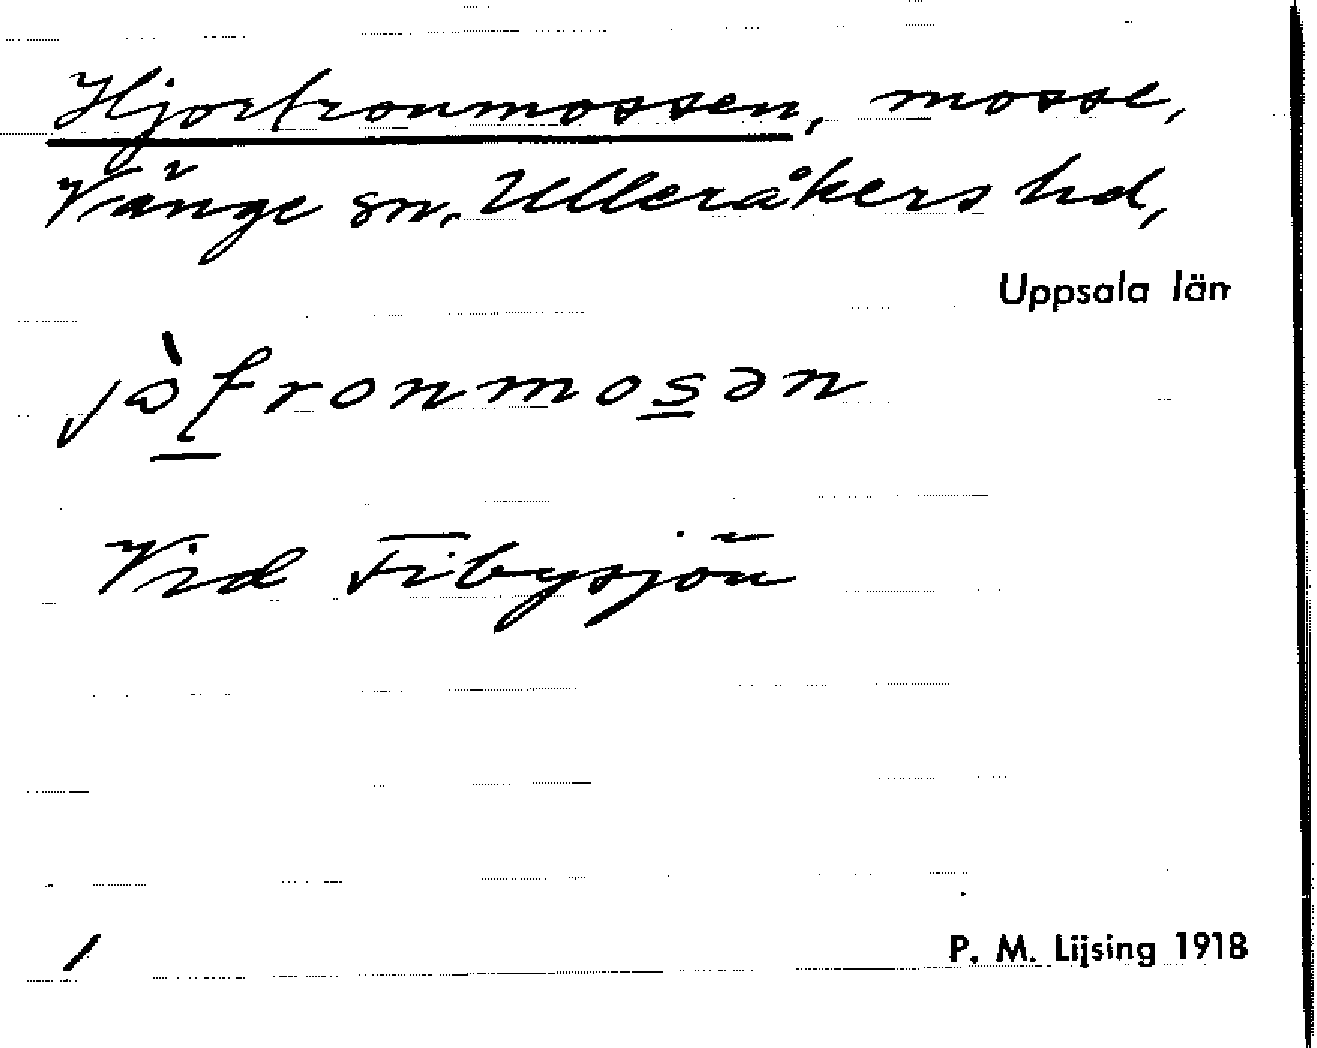 Hjortronmossen, mosse,
Vänge sn, Ulleråkers hd,
Uppsala län
jòtronmosən
Vid Fibysjön
P. M. Lijsing 1918